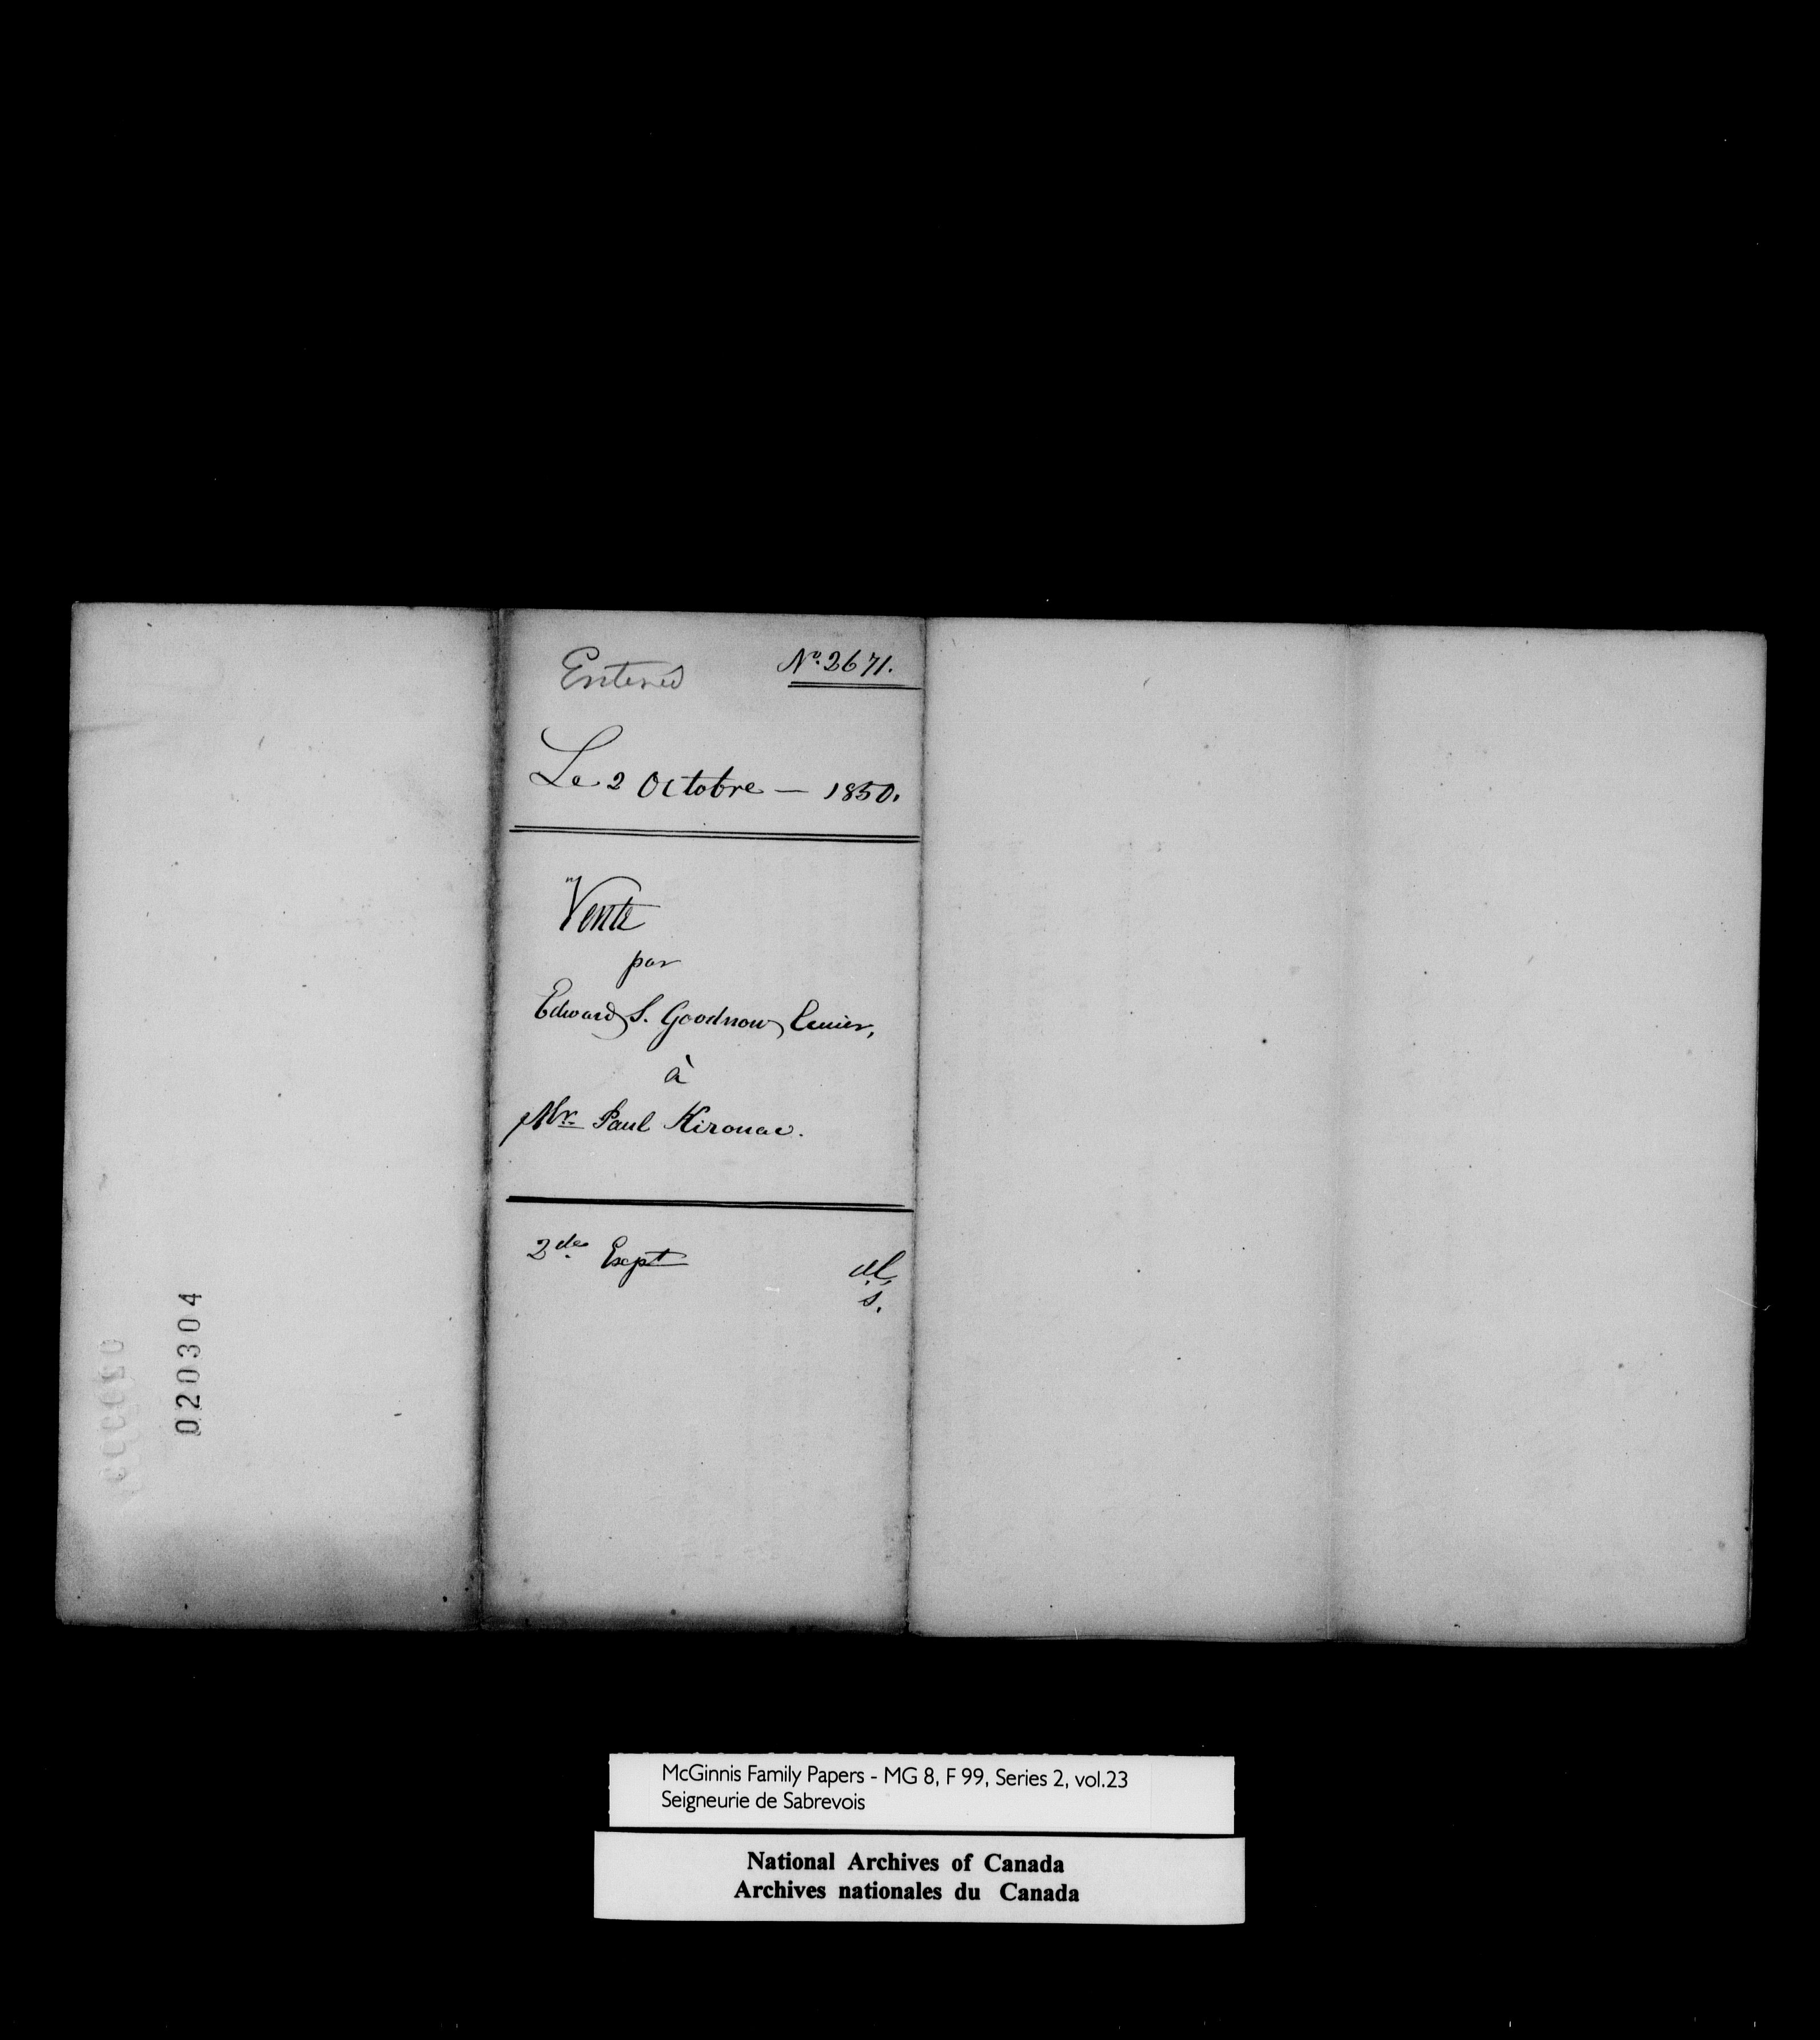 Entered
No. 2671.
Le 2 Octobre — 1850.
Vente
par
Edward S. Goodnow,
à
Mr. Paul Kirouac.
2de Expt
020304
McGinnis Family Papers - MG 8, F 99, Series 2, vol.23
Seigneurie de Sabrevois
National Archives of Canada
Archives nationales du Canada